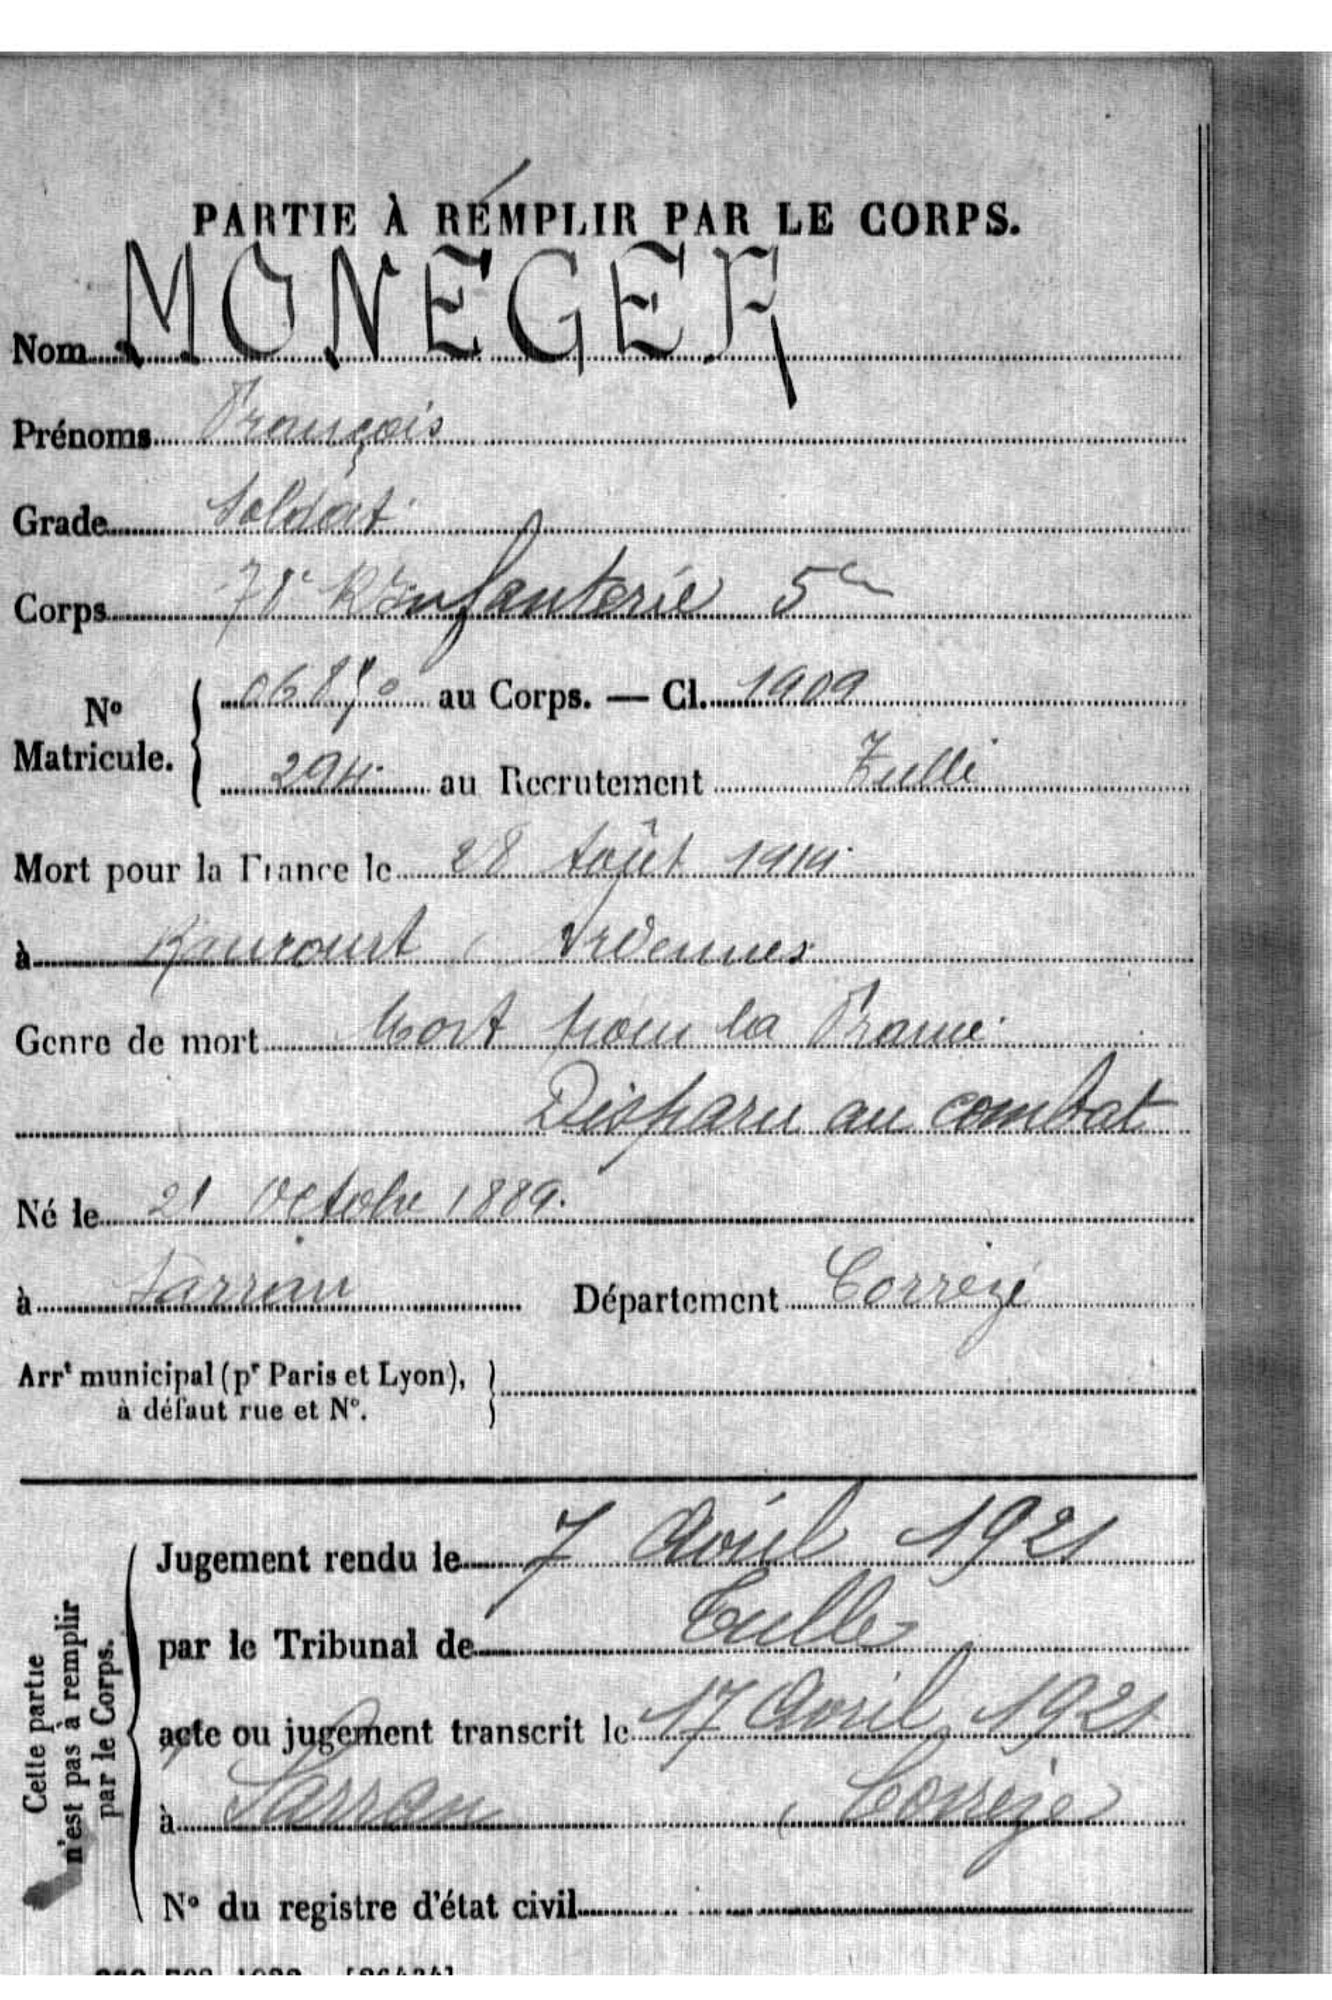 PARTIE À REMPLIR PAR LE CORPS.
Nom MONÉGER
Prénoms François
Grade Soldat
Corps 78e R Infanterie 5e
N° Matricule. { au Corps. — Cl. 1909
294 au Recrutement Tulle
Mort pour la France le 28 Août 1914
à Raucourt, Ardennes
Genre de mort Mort pour la France
Disparu au combat
Né le 21 Octobre 1889.
à Sarran Département Corrèze
Arrt municipal (pr Paris et Lyon), }
à défaut rue et N°.
Cette partie
n'est pas à remplir
par le Corps.
Jugement rendu le 7 Avril 1921
par le Tribunal de Tulle
acte ou jugement transcrit le 17 Avril 1921
à Sarran, Corrèze
N° du registre d'état civil